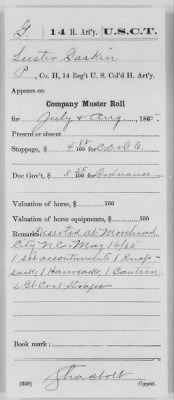 G | 14 H. Art'y. | U.S.C.T.
Luster Gaskin
P, Co. H, 14 Reg't U. S. Col'd H. Art'y.
Appears on
Company Muster Roll
for July & Aug, 186
Present or absent
Stoppage, $ 100 for C.C.&G.E.
Due Gov't, $ 100 for Ordnance
Valuation of horse, $ 100
Valuation of horse equipments, $ 100
Remarks: Deserted at Morehead
City NC May 16/65
1 Set accoutrements 1 Knap-
sack, 1 Haversack, 1 Canteen
2 Gt Coat Straps
Book mark:
(358)
Shadbolt
Copyist.